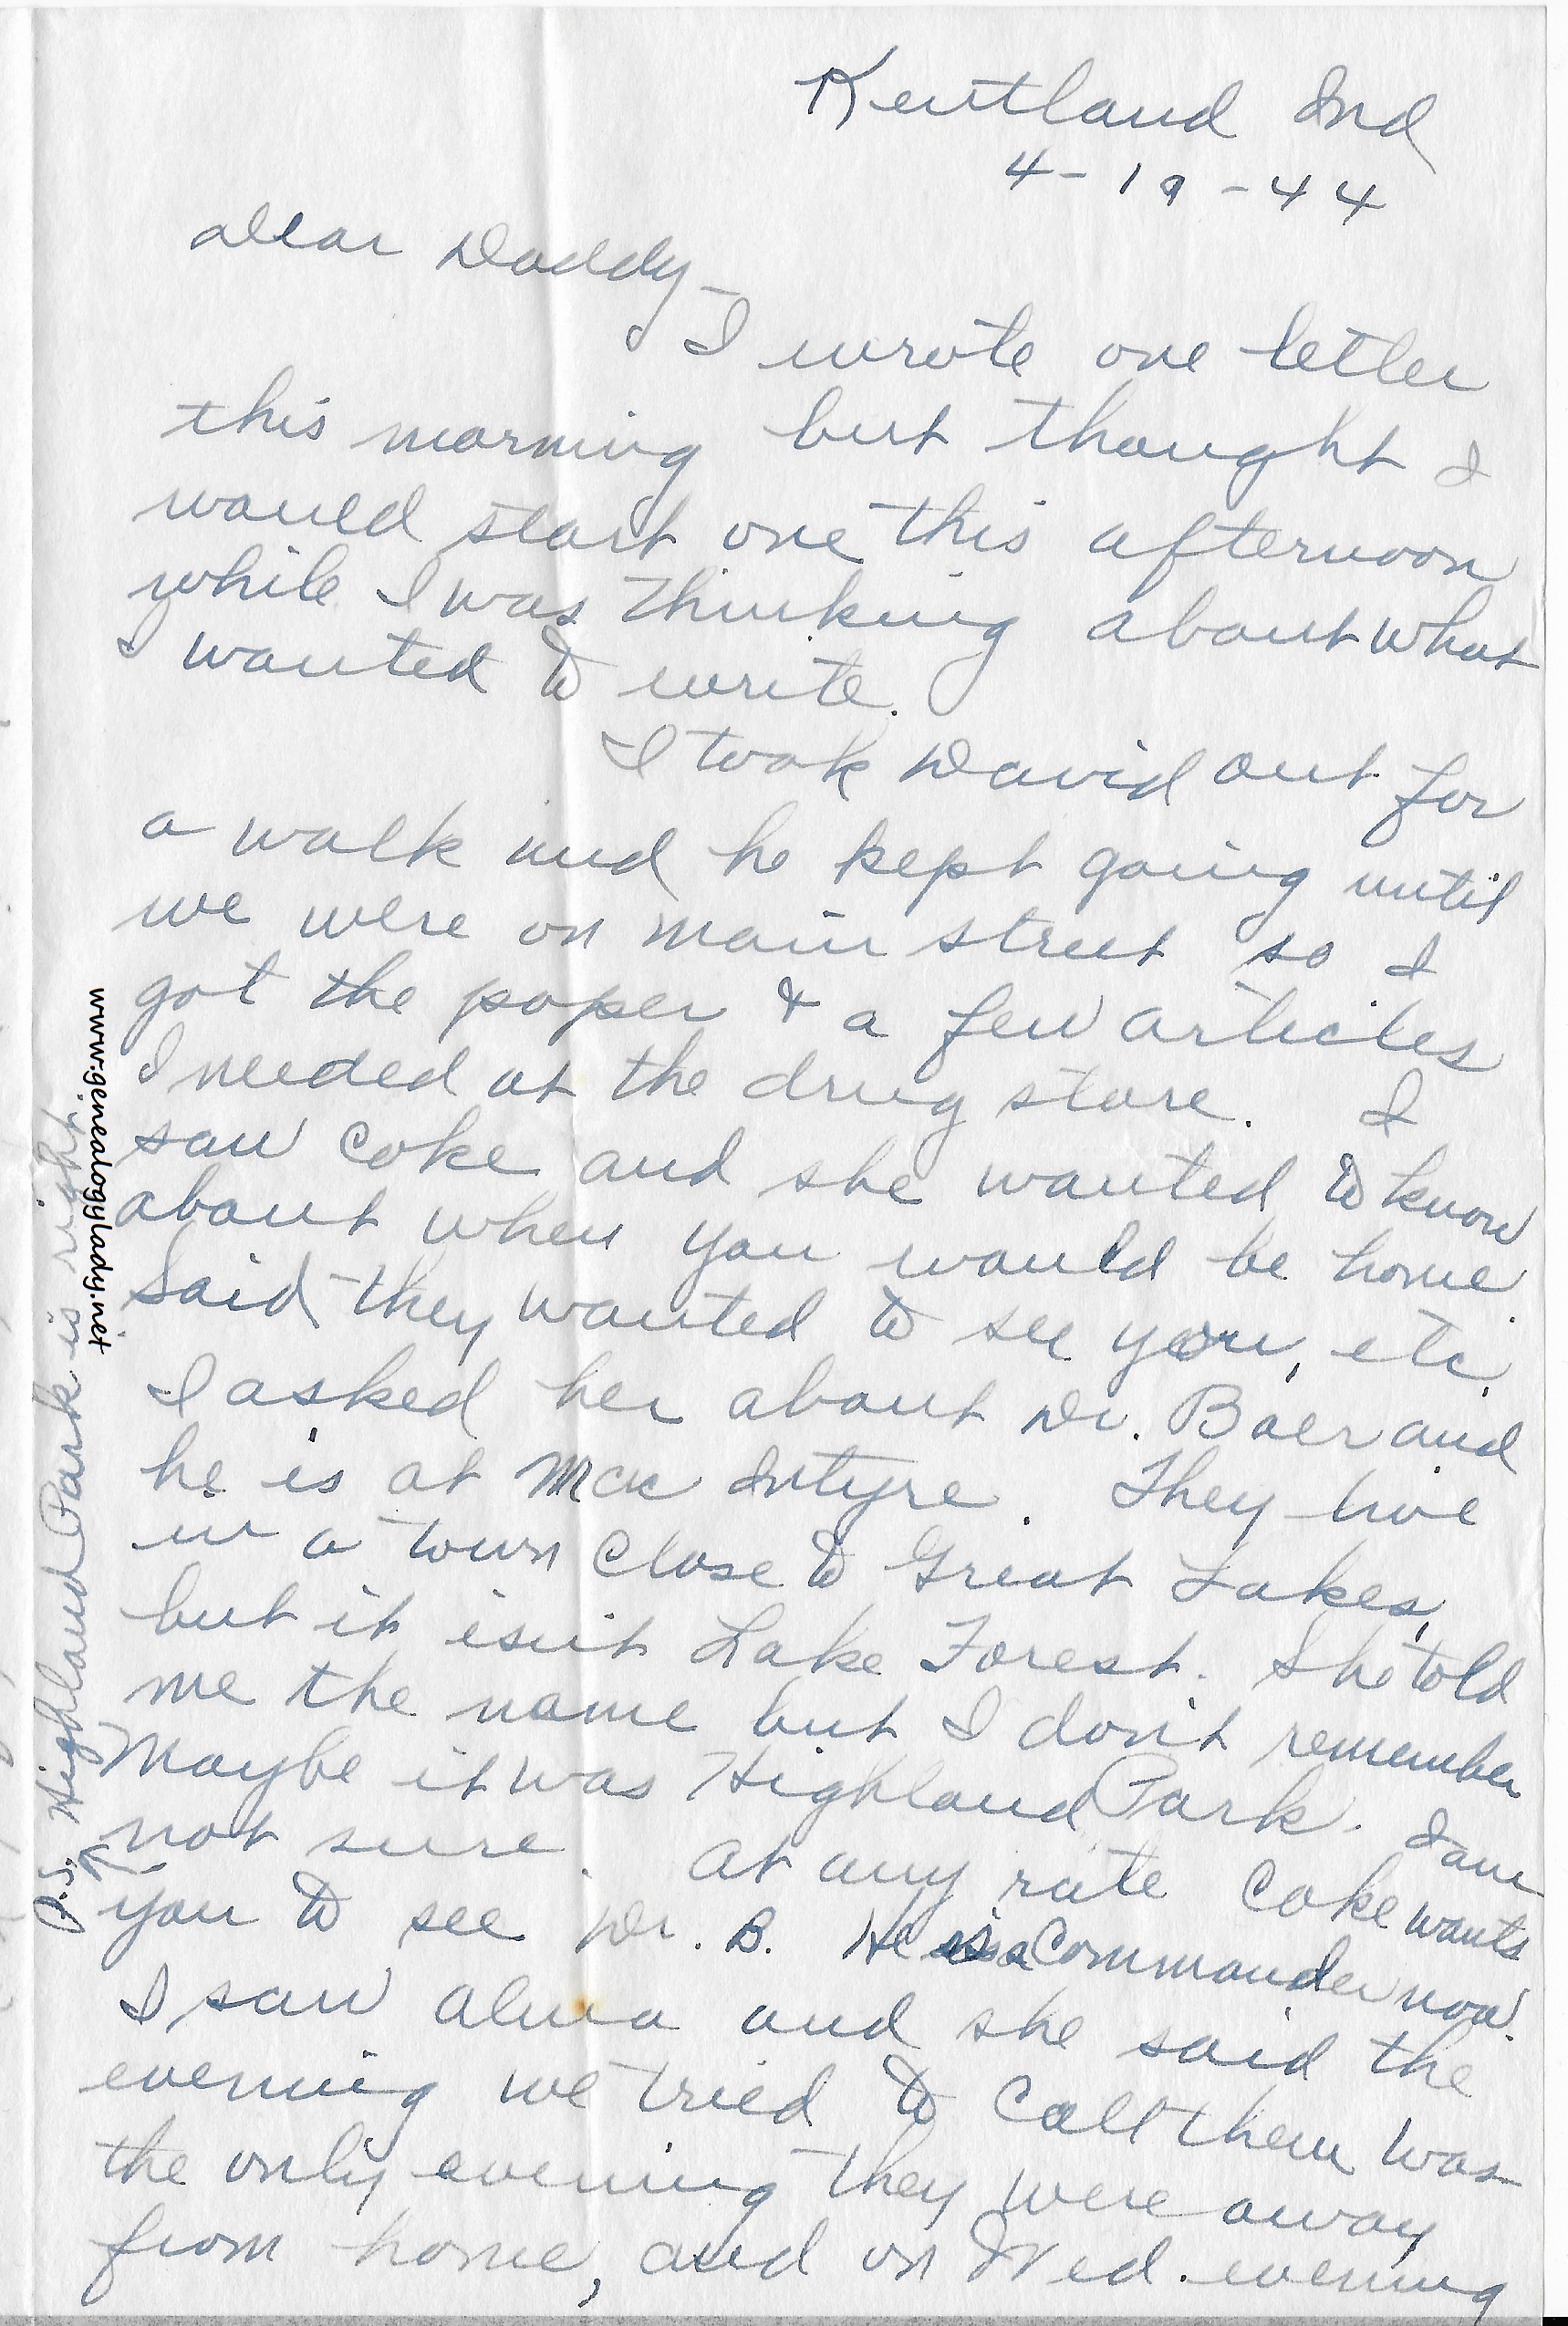 Kentland Ind
4-19-44
Dear Daddy-
I wrote one letter
this morning but thought I
would start one this afternoon
while I was thinking about what
I wanted to write.
I took David out for
a walk and he kept going until
we were on main street so I
got the paper & a few articles
I needed at the drug store. I
saw Coke and she wanted to know
about when you would be home.
Said they wanted to see you, etc.
I asked her about Dr. Baer and
he is at Mac Intyre. They live
in a town close to Great Lakes,
but it isn't Lake Forest. She told
me the name but I don't remember
Maybe it was Highland Park. I am
not sure. At any rate Coke wants
you to see Dr. B. He is a Commander now.
I saw Alma and she said the
evening we tried to call them was
the only evening they were away
from home, and on Wed. evening
P.S. Highland Park is right.
www.genealogylady.net